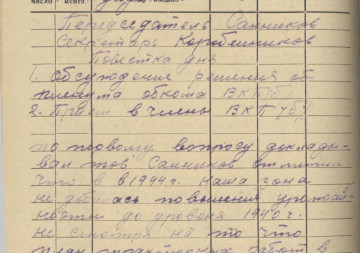 число
Председатель Санников
Секретарь Коробейников
Повестка дня
1. Обсуждение решения об
пленума обкома ВКП(б)
2. Прием в члены ВКП(б)
по первому вопросу доклады-
вал тов Санников отметил
что в 1944 г. наша зона
не добилась повышения урожай-
ности до уровня 1940 г.
не смотря на то что
план тракторных работ в